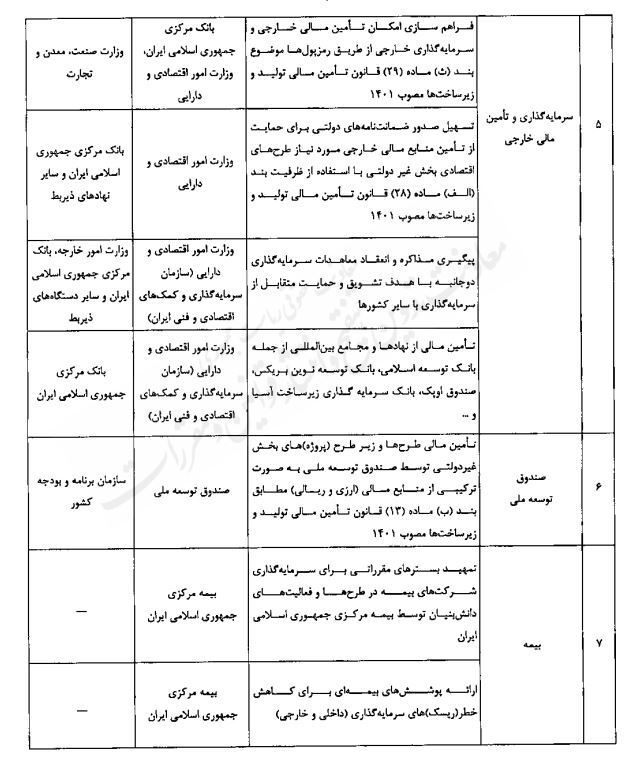 ۵
سرمایه‌گذاری و تأمین
مالی خارجی
فراهم سازی امکان تأمین مالی خارجی و
سرمایه‌گذاری خارجی از طریق رمزپول‌ها موضوع
بند (ث) ماده (۲۹) قانون تأمین مالی تولید و
زیرساخت‌ها مصوب ۱۴۰۱
بانک مرکزی
جمهوری اسلامی ایران،
وزارت امور اقتصادی و
دارایی
وزارت صنعت، معدن و
تجارت
تسهیل صدور ضمانت‌نامه‌های دولتی برای حمایت
از تأمین منابع مالی خارجی مورد نیاز طرح‌های
اقتصادی بخش غیر دولتی با استفاده از ظرفیت بند
(الف) ماده (۲۸) قانون تأمین مالی تولید و
زیرساخت‌ها مصوب ۱۴۰۱
وزارت امور اقتصادی و
دارایی
بانک مرکزی جمهوری
اسلامی ایران و سایر
نهادهای ذیربط
پیگیری مذاکره و انعقاد معاهدات سرمایه‌گذاری
دوجانبه با هدف تشویق و حمایت متقابل از
سرمایه‌گذاری با سایر کشورها
وزارت امور اقتصادی و
دارایی (سازمان
سرمایه‌گذاری و کمک‌های
اقتصادی و فنی ایران)
وزارت امور خارجه، بانک
مرکزی جمهوری اسلامی
ایران و سایر دستگاه‌های
ذیربط
تأمین مالی از نهادها و مجامع بین‌المللی از جمله
بانک توسعه اسلامی، بانک توسعه نوین بریکس،
صندوق اوپک، بانک سرمایه گذاری زیرساخت آسیا
و ...
وزارت امور اقتصادی و
دارایی (سازمان
سرمایه‌گذاری و کمک‌های
اقتصادی و فنی ایران)
بانک مرکزی
جمهوری اسلامی ایران
۶
صندوق
توسعه ملی
تأمین مالی طرح‌ها و زیر طرح (پروژه)های بخش
غیردولتی توسط صندوق توسعه ملی به صورت
ترکیبی از منابع مالی (ارزی و ریالی) مطابق
بند (ب) ماده (۱۳) قانون تأمین مالی تولید و
زیرساخت‌ها مصوب ۱۴۰۱
صندوق توسعه ملی
سازمان برنامه و بودجه
کشور
۷
بیمه
تمهید بسترهای مقرراتی برای سرمایه‌گذاری
شرکت‌های بیمه در طرح‌ها و فعالیت‌های
دانش‌بنیان توسط بیمه مرکزی جمهوری اسلامی
ایران
بیمه مرکزی
جمهوری اسلامی ایران
—
ارائه پوشش‌های بیمه‌ای برای کاهش
خطر(ریسک)های سرمایه‌گذاری (داخلی و خارجی)
بیمه مرکزی
جمهوری اسلامی ایران
—